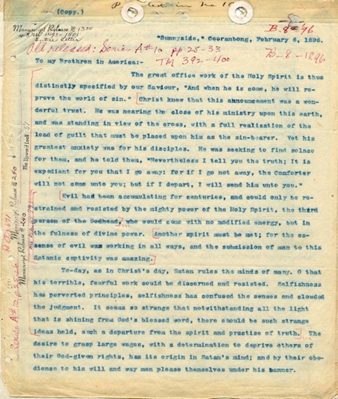 (Copy.)
B-8-'96
"Sunnyside," Cooranbong, February 6, 1896.
All released: Series A #10 pp 25-33
B-8-1896
TM 392-400
To my Brethren in America:-
The great office work of the Holy Spirit is thus
distinctly specified by our Saviour, "And when he is come, he will re-
prove the world of sin." Christ knew that this announcement was a won-
derful truth. He was nearing the close of his ministry upon this earth,
and was standing in view of the cross, with a full realization of the
load of guilt that must be placed upon him as the sin-bearer. Yet his
greatest anxiety was for his disciples. He was seeking to find solace
for them, and he told them, "Nevertheless I tell you the truth; It is
expedient for you that I go away: for if I go not away, the Comforter
will not come unto you; but if I depart, I will send him unto you."
Evil had been accumulating for centuries, and could only be re-
strained and resisted by the mighty power of the Holy Spirit, the third
person of the Godhead, who would come with no modified energy, but in
the fulness of divine power. Another spirit must be met; for the es-
sence of evil was working in all ways, and the submission of man to this
Satanic captivity was amazing.
To-day, as in Christ's day, Satan rules the minds of many. O that
his terrible, fearful work could be discerned and resisted. Selfishness
has perverted principles, selfishness has confused the senses and clouded
the judgment. It seems so strange that notwithstanding all the light
that is shining from God's blessed word, there should be such strange
ideas held, such a departure from the spirit and practice of truth. The
desire to grasp large wages, with a determination to deprive others of
their God-given rights, has its origin in Satan's mind; and by their obe-
dience to his will and way men place themselves under his banner.